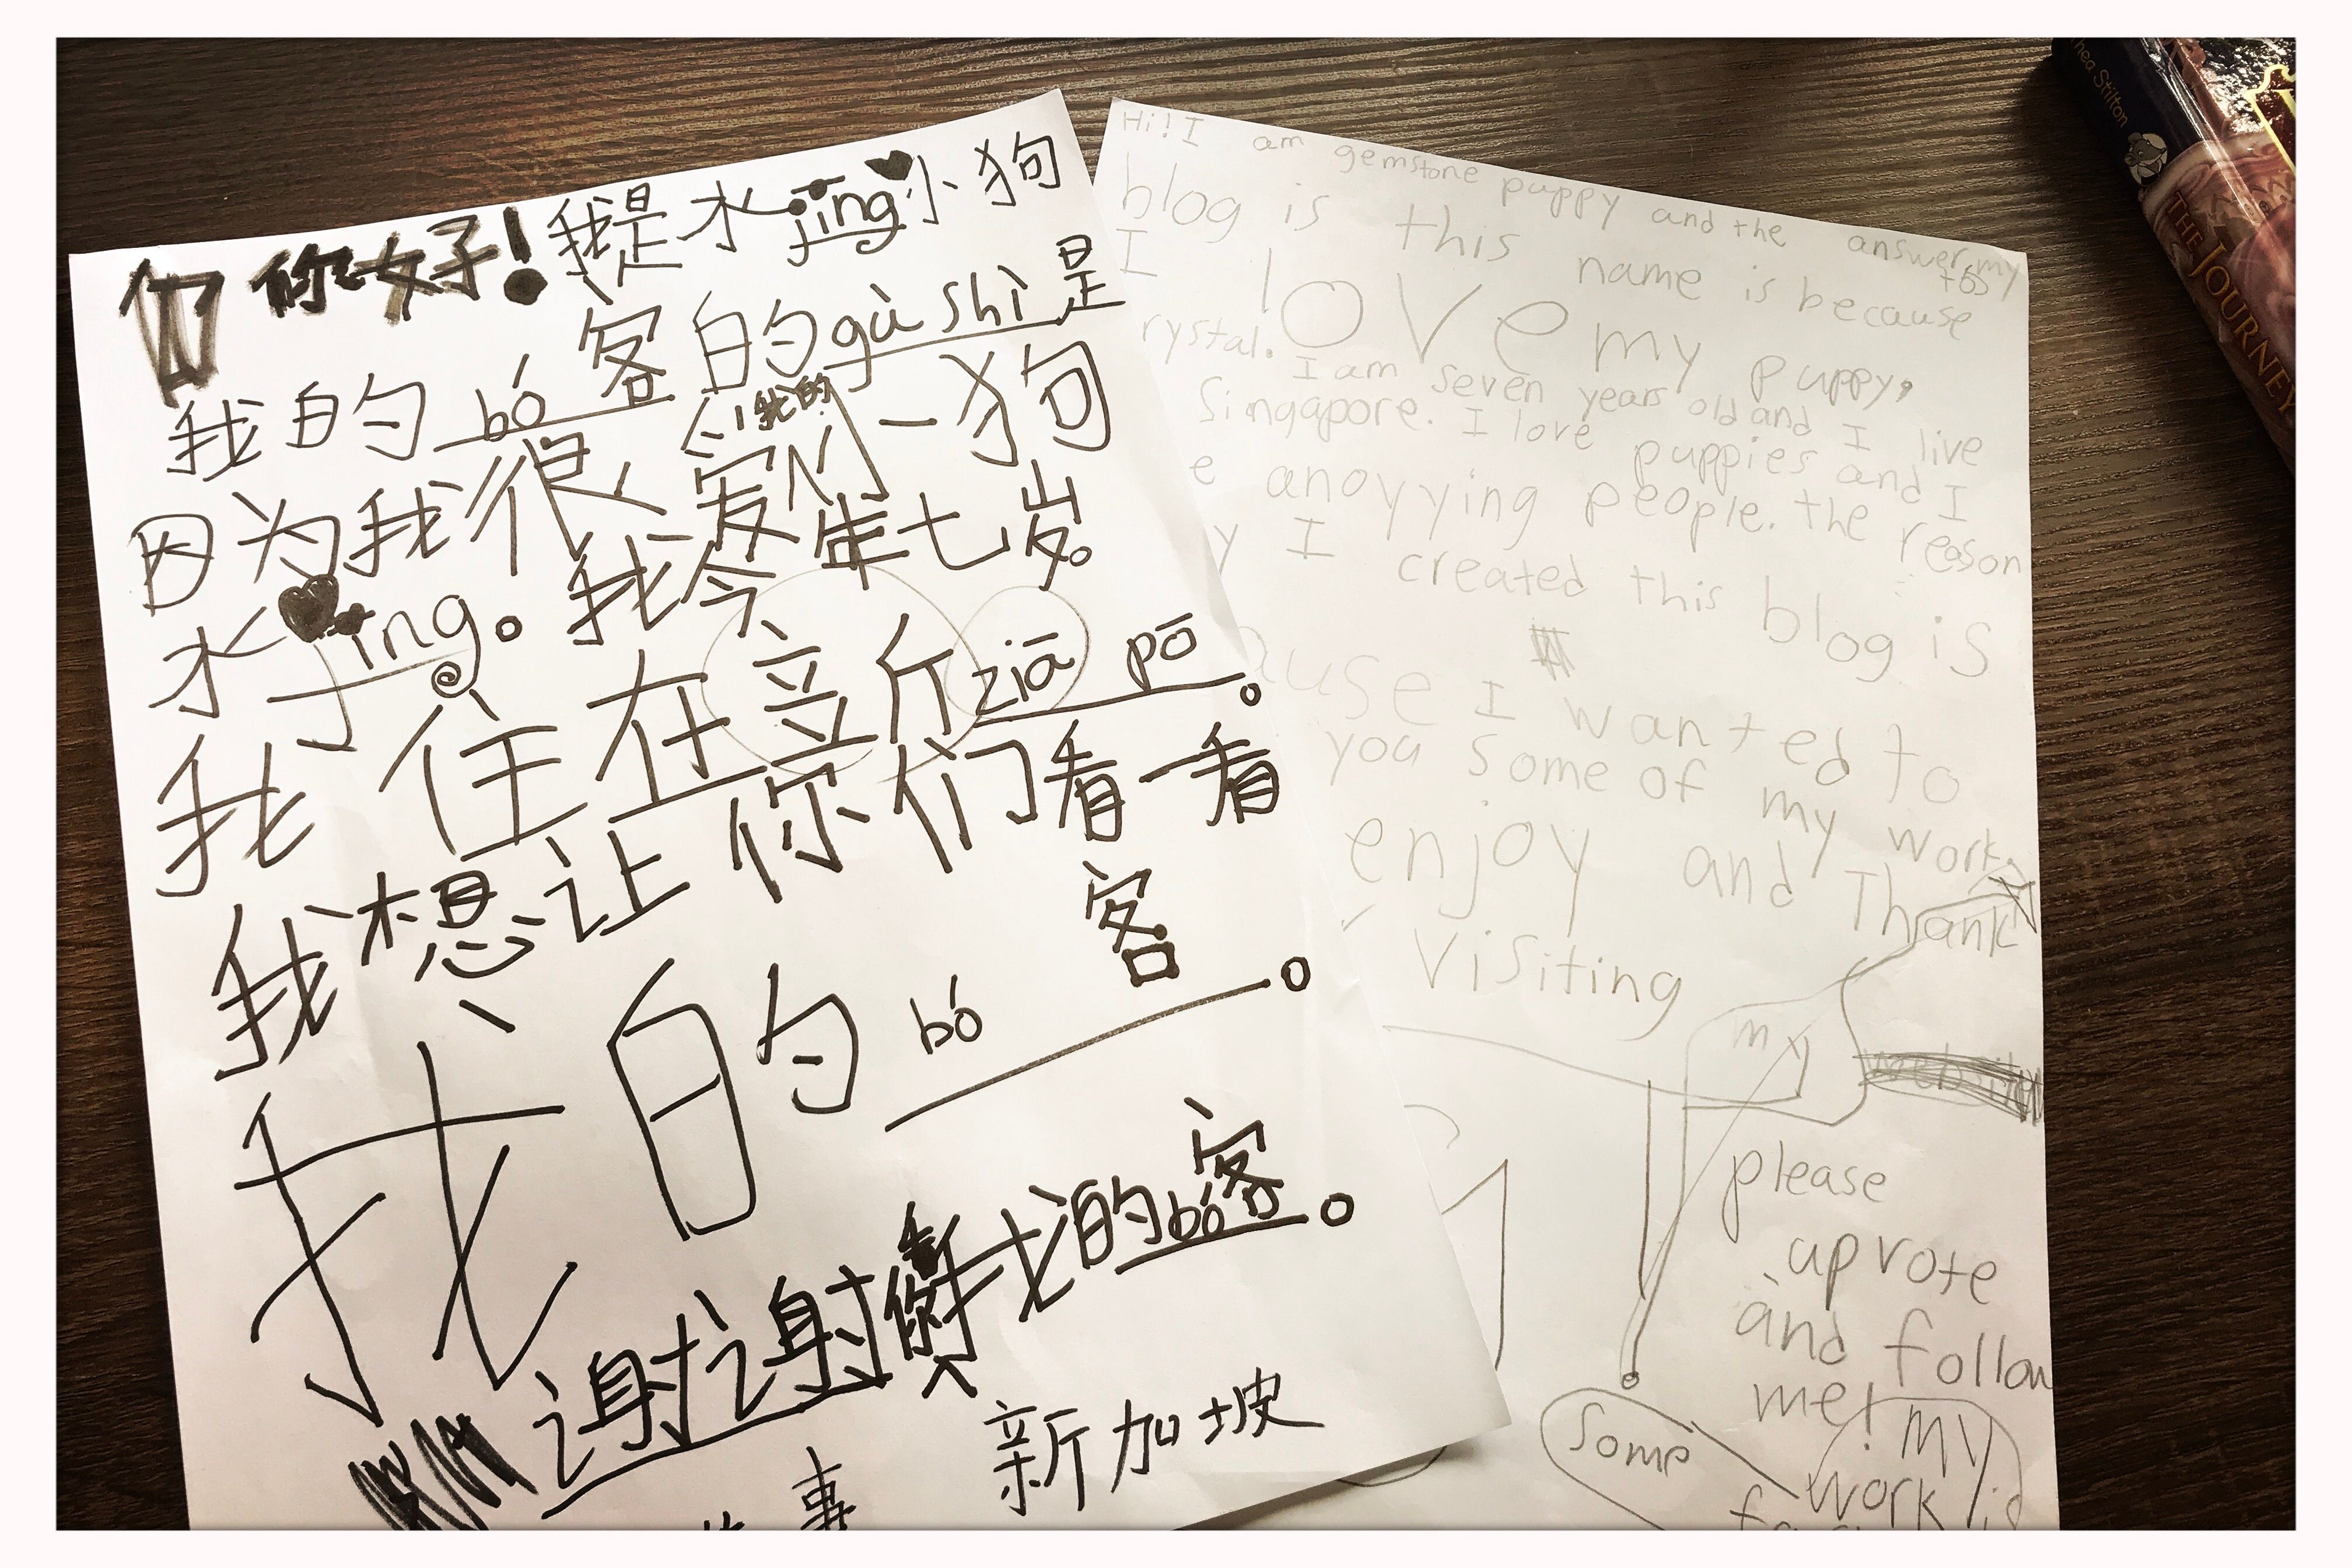 你好!我是水jīng小狗
我的bó客的gù shì是
因为我很爱我的小狗
水jīng。我今年七岁。
我住在立斤ziā pō。
我想让你们看一看
我的bó客。
谢谢你看我的bó客。
新加坡
事
Hi! I am gemstone puppy and the answer to my
blog is this name is because
I love my puppy,
rystal. I am seven years old and I live
Singapore. I love puppies and I
e anoyying people. the reason
y I created this blog is
ause I wanted to
you some of my work.
enjoy and Thank
visiting
my
website
please
upvote
and follow
me! my
Some work is
Thea Stilton
THE JOURNEY